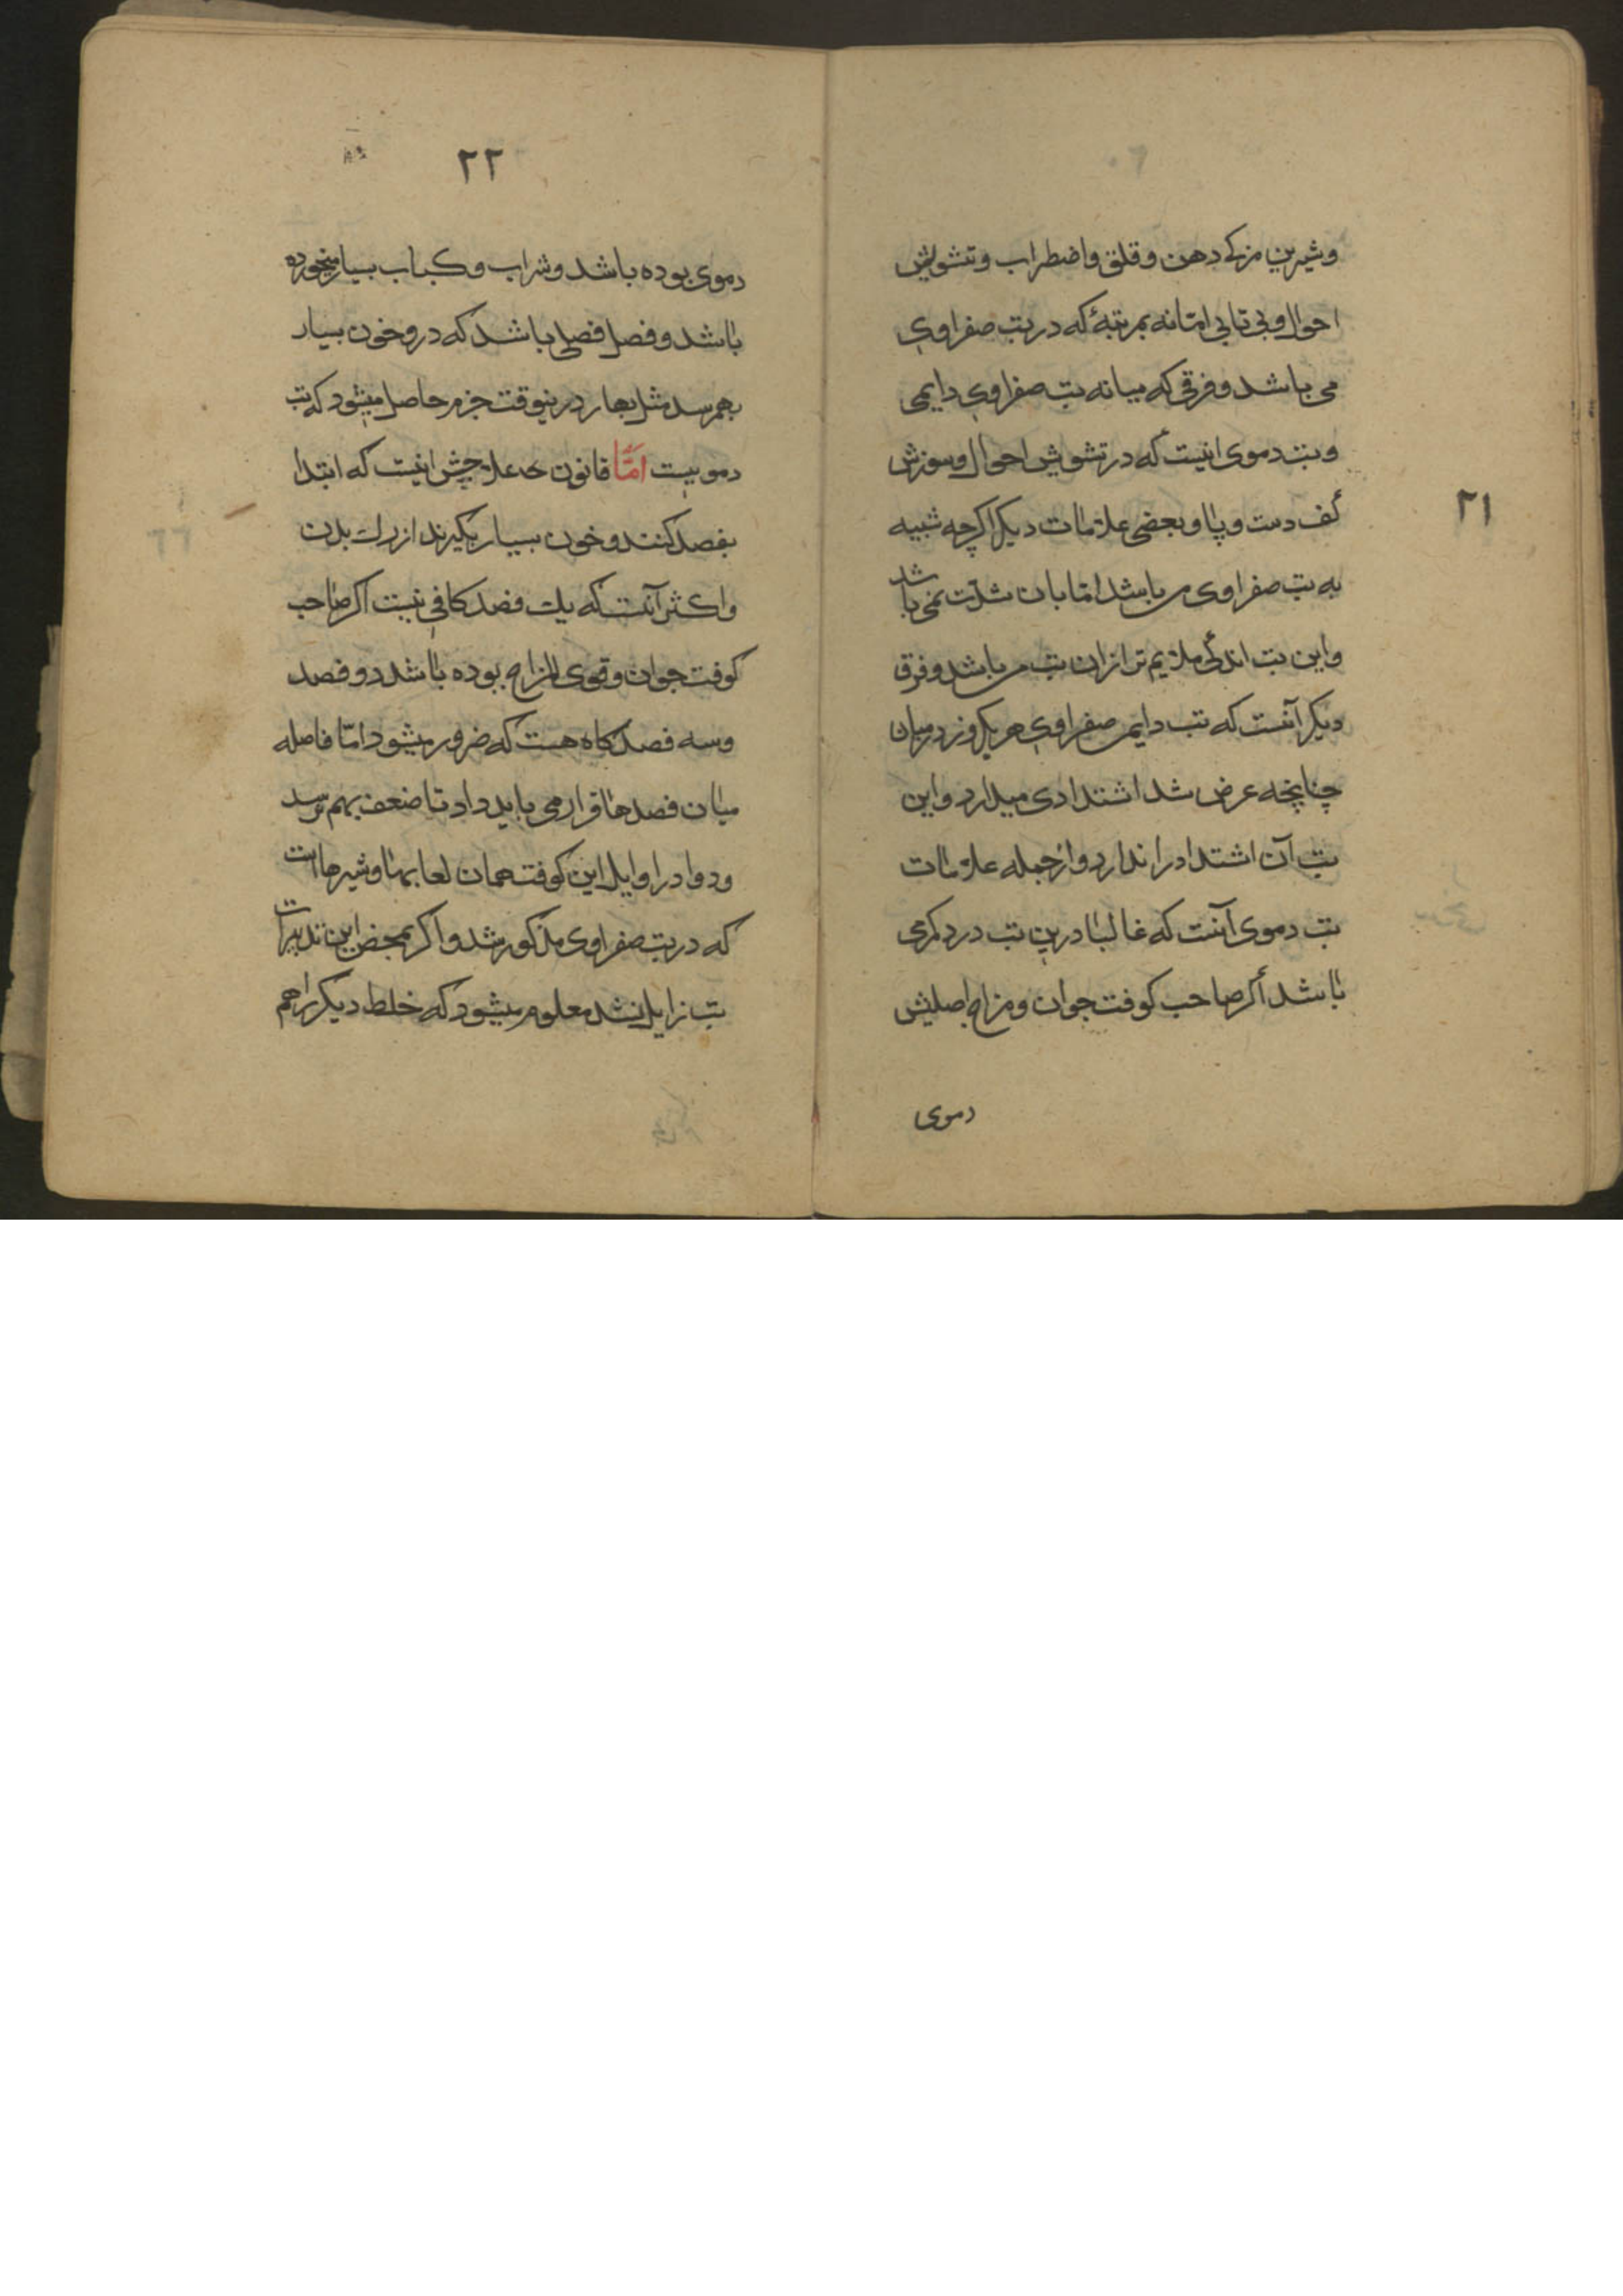 وشیرین مزکی دهن وقلق واضطراب وتشویش
احوال وبی تابی امّا نه بمرتبهٔ که در تب صفراوی
می باشد وفرقی که میانه تب صفراوی دایمی
وتب دموی اینست که در تشویش احوال وسوزش
کف دست وپا وبعضی علامات دیکر اکرچه شبیه
به تب صفراوی می باشد امّا بان شدّت نمی باشد
واین تب اندکی ملایم تر ازان تب می باشد وفرق
دیکر آنست که تب دایمی صفراوی هر یکروز درمیان
چنانچه عرض شد اشتدادی میدارد واین
تب آن اشتداد را ندارد وازجمله علامات
تب دموی آنست که غالبا درین تب درد کمر می
باشد اکر صاحب کوفت جوان ومزاج اصلیش
دموی
۲۱
۲۲
دموی بوده باشد وشراب وکباب بسیار میخورده
باشد وفصل فصلی باشد که درو خون بسیار
بهمرسد مثل بهار درینوقت جزم حاصل میشود که تب
دمویست امّا قانون علاجش اینست که ابتدا
بفصد کنند وخون بسیار بکیرند از رک بدن
واکثر آنست که یک فصد کافی نیست اکر صاحب
کوفت جوان وقوی المزاج بوده باشد دو فصد
وسه فصد کاه هست که ضرور میشود امّا فاصله
میان فصدها قرار می باید داد تا ضعف بهم نرسد
ودوا در اوایل این کوفت همان لعابها وشیرهااست
که در تب صفراوی مذکور شد واکر بمحض این تدبیرات
تب زایل نشد معلوم میشود که خلط دیکر را هم